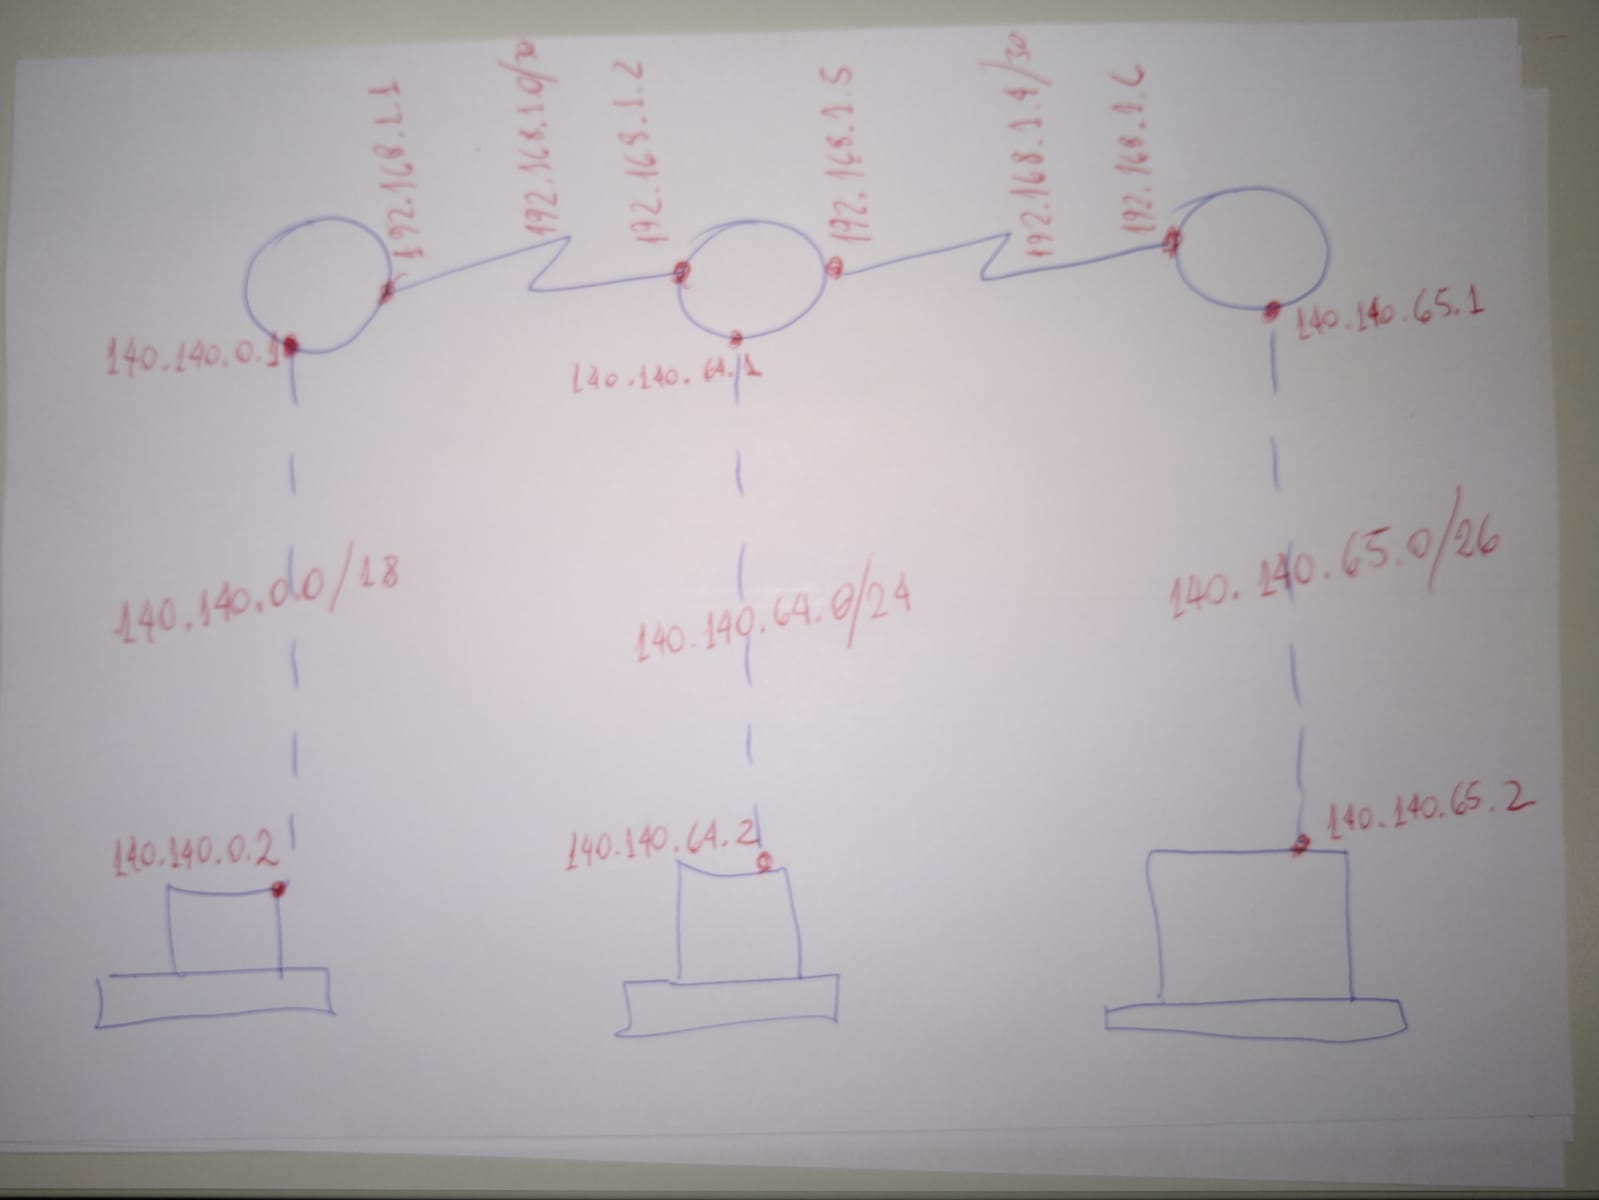 192.168.1.1
192.168.1.0/30
192.168.1.2
192.168.1.5
192.168.1.4/30
192.168.1.6
140.140.0.1
140.140.64.1
140.140.65.1
140.140.0.0/18
140.140.64.0/24
140.140.65.0/26
140.140.0.2
140.140.64.2
140.140.65.2